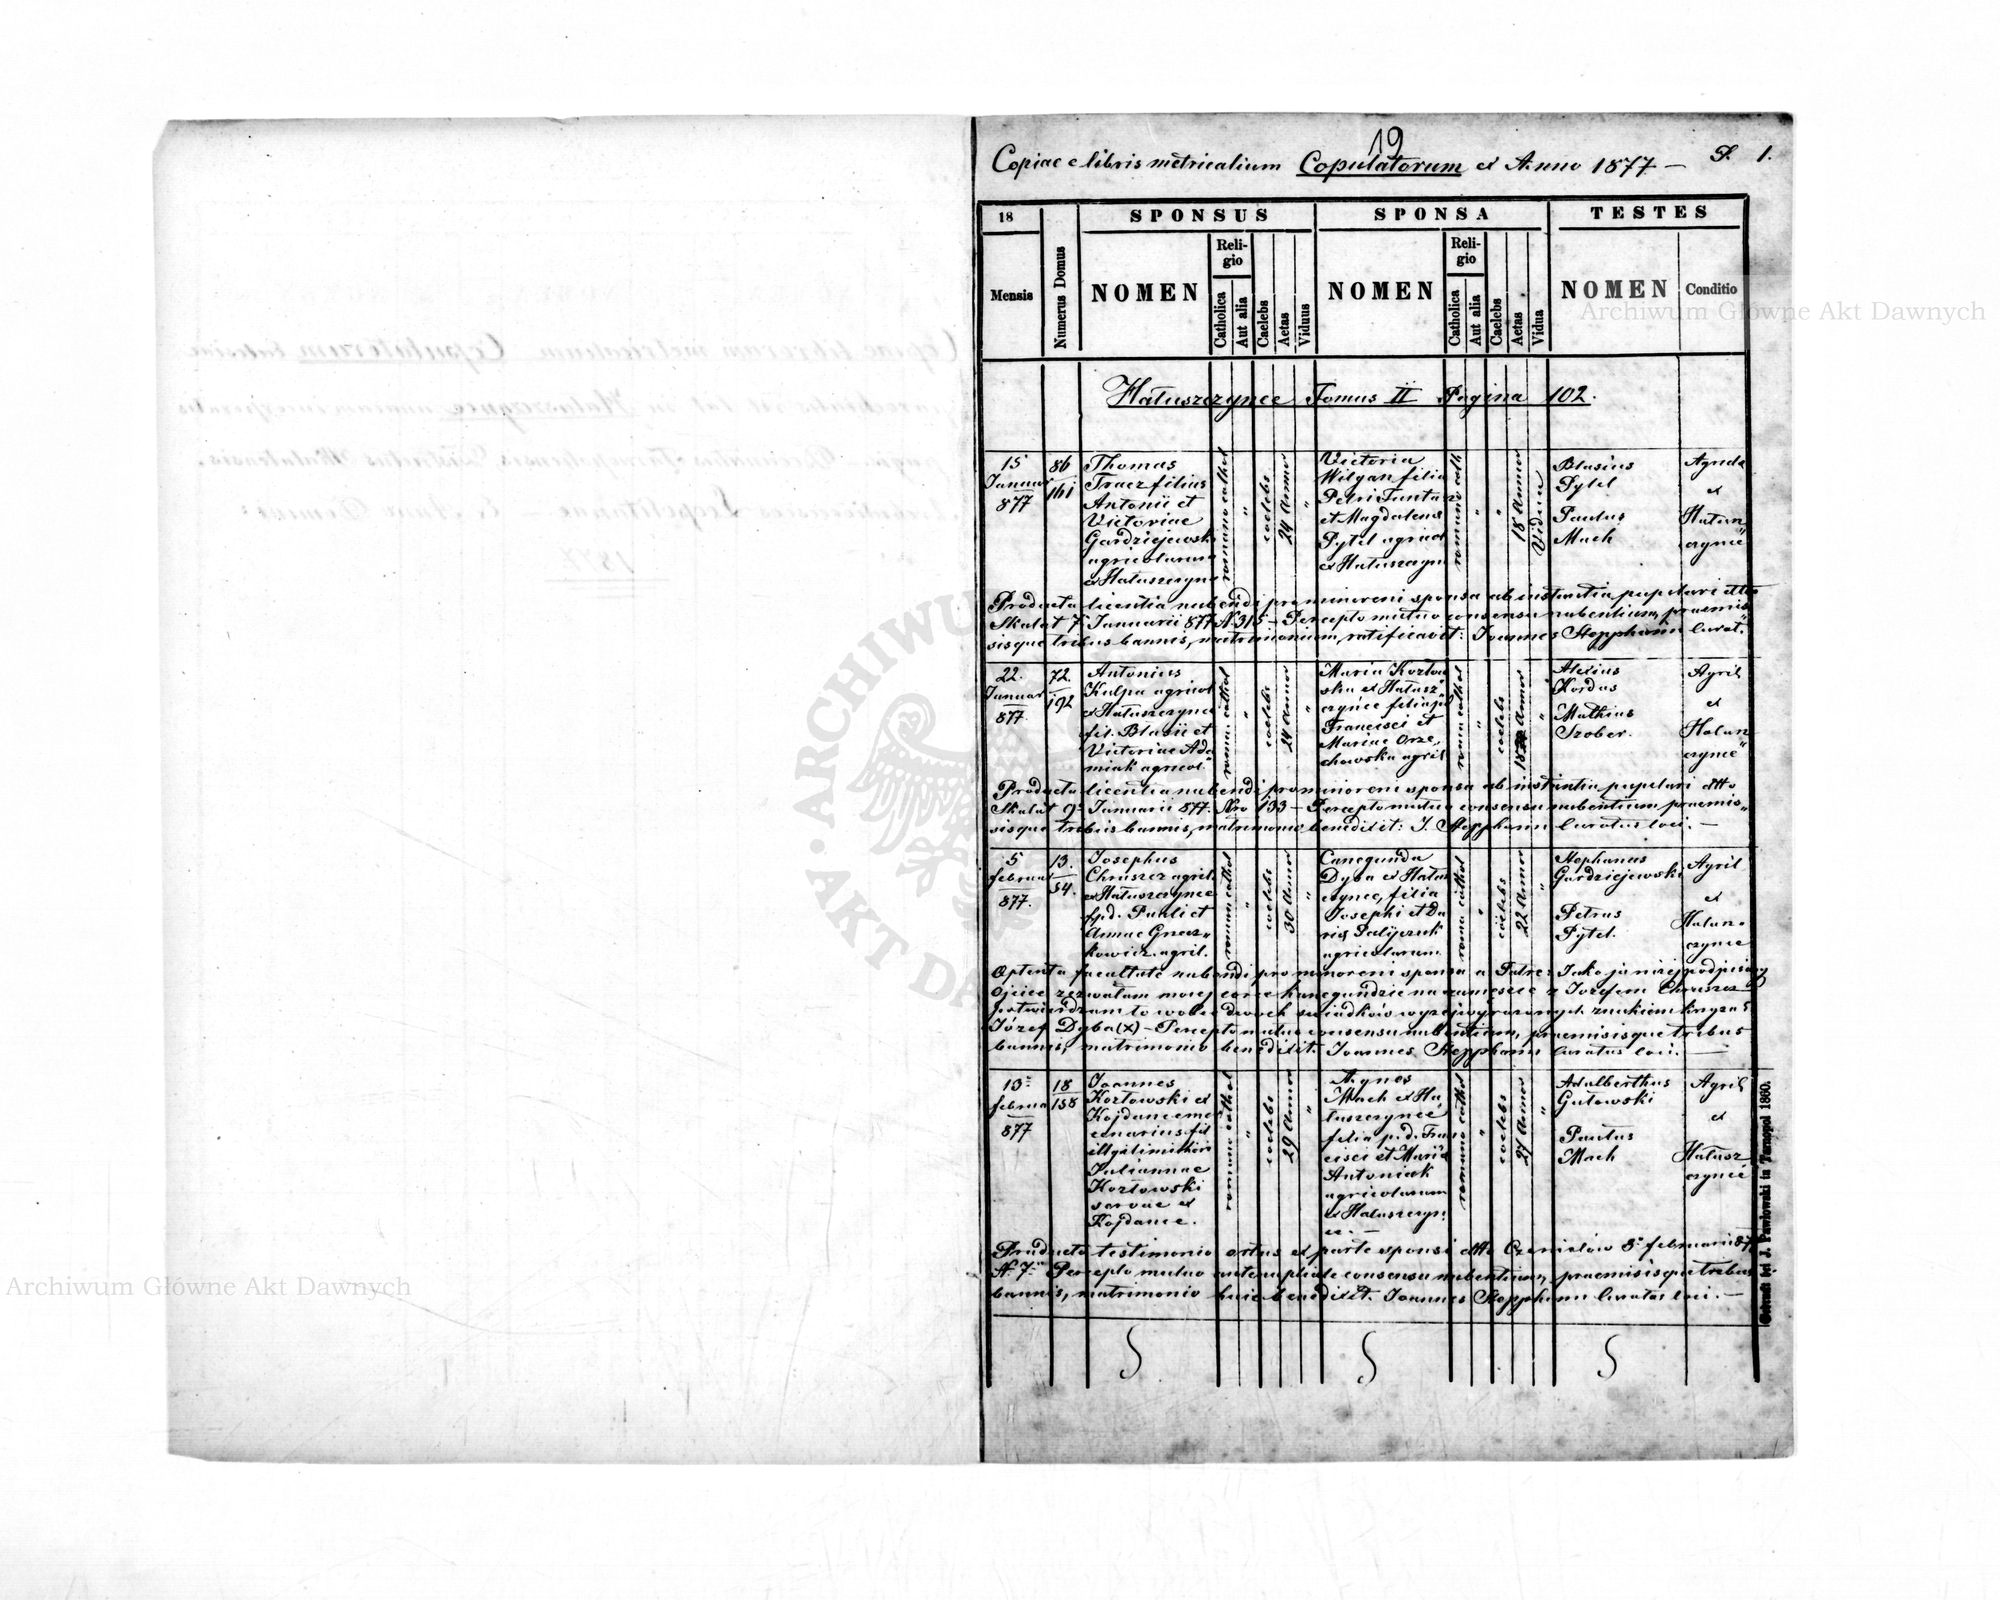 19
Copiae e libris metricalium Copulatorum ex Anno 1877 — P. 1.
18
SPONSUS
SPONSA
TESTES
Mensis
Numerus Domus
NOMEN
Religio
Catholica
Aut alia
Caelebs
Aetas
Viduus
NOMEN
Religio
Catholica
Aut alia
Caelebs
Aetas
Vidua
NOMEN
Conditio
Hałuszczynce Tomus II Pagina 102.
15
Januar
877
86
161
Thomas
Tracz filius
Antonii et
Victoriae
Gardziejewski
agricolarum
ex Hałuszczyn
romano cathol
"
coelebs
24 annor
"
Victoria
Wilgan filia
Petri
et Magdalena
Pytel agricol
ex Hałuszczyn
romano cath
"
"
18 annor
Vidua
Blasius
Pytel
Paulus
Mach
Agricola
ex
Hałusz
czynce
Producta licentia nubendi pro minoreni sponsa ab instantia pupilari dtto
Skałat 7 Januarii 877 N 315 — Percepto mutuo consensu nubentium, praemis
sisque tribus bannis, matrimonium ratificavit: Joannes Stepphann Curat.
22.
Januar
877.
72.
192
Antonius
Kulpa agricol
ex Hałuszczynce
fil. Blasii et
Victoriae Ada
miak agricol.
roma. cathol
"
coelebs
24 annor
"
Maria Kozłow
ska ex Hałusz
czynce filia pd
Francisci et
Mariae Orze,,
chowska agril
roma cathol
"
coelebs
18 annor
"
Alexius
Kordas
Mathias
Szober.
Agril
ex
Hałusz
czynce
Producta licentia nubendi pro minoreni sponsa ab instantia pupilari dtto
Skałat 9 Januarii 877. Nro 133 — Percepto mutuo consensu nubentium praemis,,
sisque tribus bannis, matrimonio benedixit: J. Stepphann Curatus loci. —
5
februar
877.
13.
54.
Josephus
Chruszcz agril.
ex Hałuszczynce
fpd. Pauli et
Annae Gnacz,,
kowicz. agril.
roman cathol
"
coelebs
30 annor
"
Cunegunda
Dyba ex Hałusz
czynce, filia
Josephi et Da
ria Palijczuk
agricolarum
roma cathol
"
coelebs
22 annor
"
Stephanus
Gardziejewski
Petrus
Pytel.
Agril
ex
Hałusz
czynce
Optenta facultate nubendi pro minoreni sponsa a Patre: Jako ja niżej podpisany
Ojciec zezwalam mojej córce Kunegundzie na zamęście z Jozefem Chruszcz
potwierdzam to wobec dwóch świadków wyżej wyrażonych znakiem krzyża
Józef Dyba (x) — Percepto mutuo consensu nubentium, praemisisque tribus
bannis, matrimonio benedixit. Joannes Stepphann Curatus loci. —
13
februa
877
18
158
Joannes
Kozłowski ex
Kojdance mer
cenarius fil
illegitimi
Juliannae
Kozłowski
servae ex
Kojdance.
romano cathol
"
coelebs
29 annor
"
Agnes
Mach ex Ha
łuszczynce
filia p.d. Fran
cisci et Maria
Antoniak
agricolarum
ex Hałuszczyn
ce. —
romano cathol
"
coelebs
27 annor
"
Adalberthus
Gutowski
Paulus
Mach
Agril
ex
Hałusz
czynce
Producto testimonio ortus ex parte sponsi dtto Czernielów 8 februarii 877
N. 7 Percepto mutuo consensu nubentium, praemisisque tribus
bannis, matrimonio huic benedixit. Joannes Stepphann Curatus loci. —
Gedruckt bei J. Pawłowski in Tarnopol 1860.
ARCHIWUM
AKT DAWNYCH
Archiwum Główne Akt Dawnych
Archiwum Główne Akt Dawnych